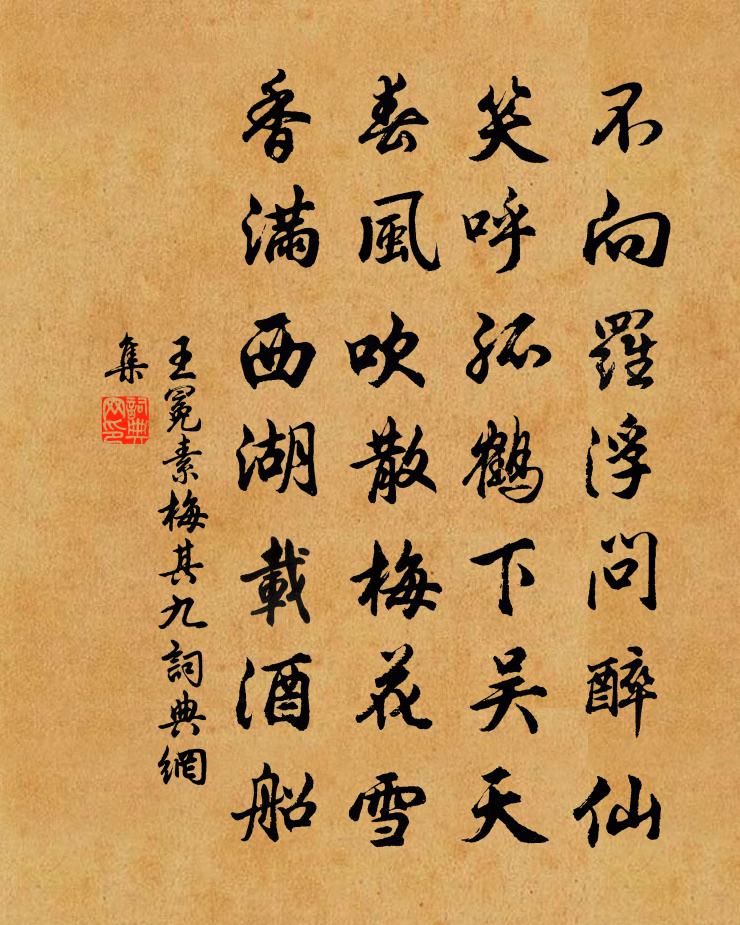 不向羅浮問醉仙
笑呼孤鶴下吴天
春風吹散梅花雪
香滿西湖載酒船
王冕素梅其九詞典網
集
詞典
网印